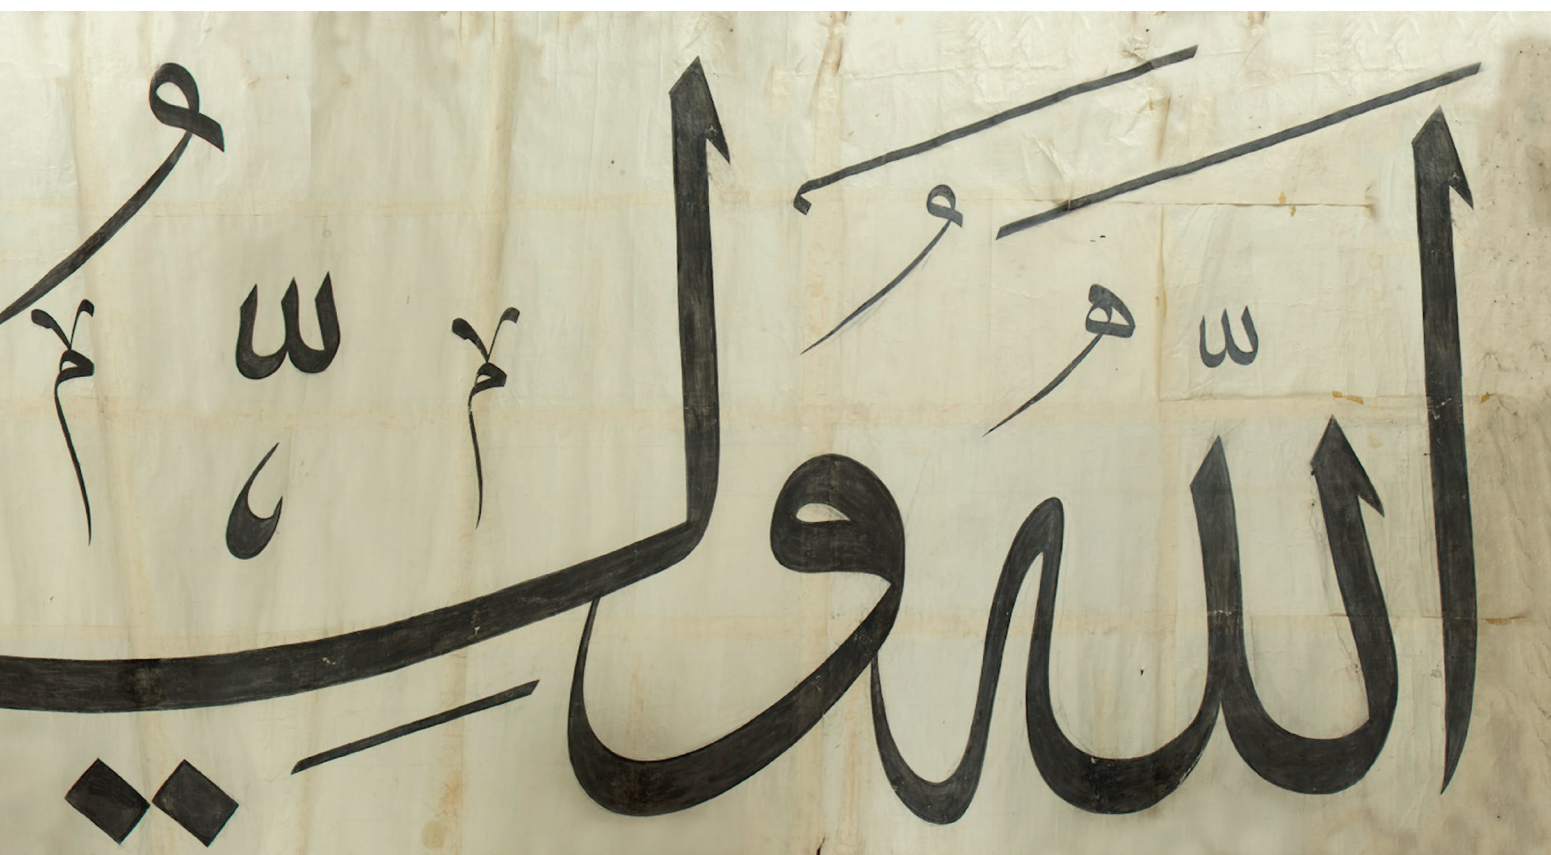 اللّٰهُ وَلِيُّ